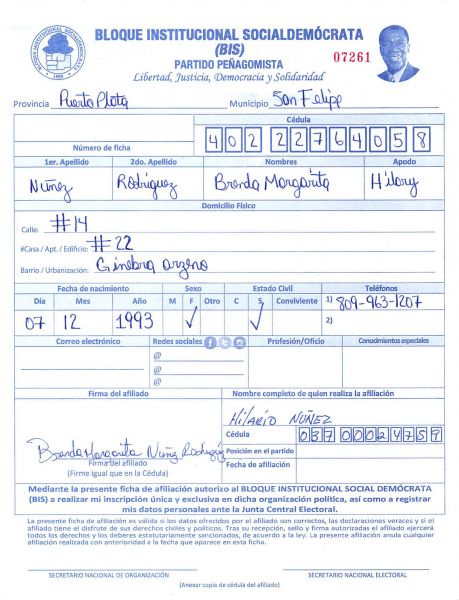 BLOQUE INSTITUCIONAL SOCIALDEMÓCRATA
(BIS)
PARTIDO PEÑAGOMISTA
07261
Libertad, Justicia, Democracia y Solidaridad
BLOQUE INSTITUCIONAL SOCIALDEMOCRATA
Provincia Puerto Plata Municipio San Felipe
Cédula
Número de ficha 402 2276405 8
1er. Apellido 2do. Apellido Nombres Apodo
Núñez Rodríguez Brenda Margarita Hilary
Domicilio Físico
Calle: #14
#Casa / Apt. / Edificio: #22
Barrio / Urbanización: Ginebra arzeno
Fecha de nacimiento Sexo Estado Civil Teléfonos
Día Mes Año M F Otro C S Conviviente 1) 809-963-1207
07 12 1993 ✓ ✓ 2)
Correo electrónico Redes sociales Profesión/Oficio Conocimientos especiales
@
@
@
Firma del afiliado Nombre completo de quien realiza la afiliación
Hilario Núñez
Cédula 037 0002475 9
Brenda Margarita Núñez Rodríguez
Firma del afiliado
(Firme igual que en la Cédula)
Posición en el partido
Fecha de afiliación
Mediante la presente ficha de afiliación autorizo al BLOQUE INSTITUCIONAL SOCIAL DEMÓCRATA
(BIS) a realizar mi inscripción única y exclusiva en dicha organización política, así como a registrar
mis datos personales ante la Junta Central Electoral.
La presente ficha de afiliación es válida si los datos ofrecidos por el afiliado son correctos, las declaraciones veraces y si el
afiliado tiene el disfrute de sus derechos civiles y políticos. Tras su recepción, sello y firma autorizada el afiliado ejercerá
todos los derechos y los deberes estatutariamente sancionados, de acuerdo a la ley. La presente afiliación anula cualquier
afiliación realizada con anterioridad a la fecha que aparece en esta ficha.
SECRETARIO NACIONAL DE ORGANIZACIÓN SECRETARIO NACIONAL ELECTORAL
(Anexar copia de cédula del afiliado)